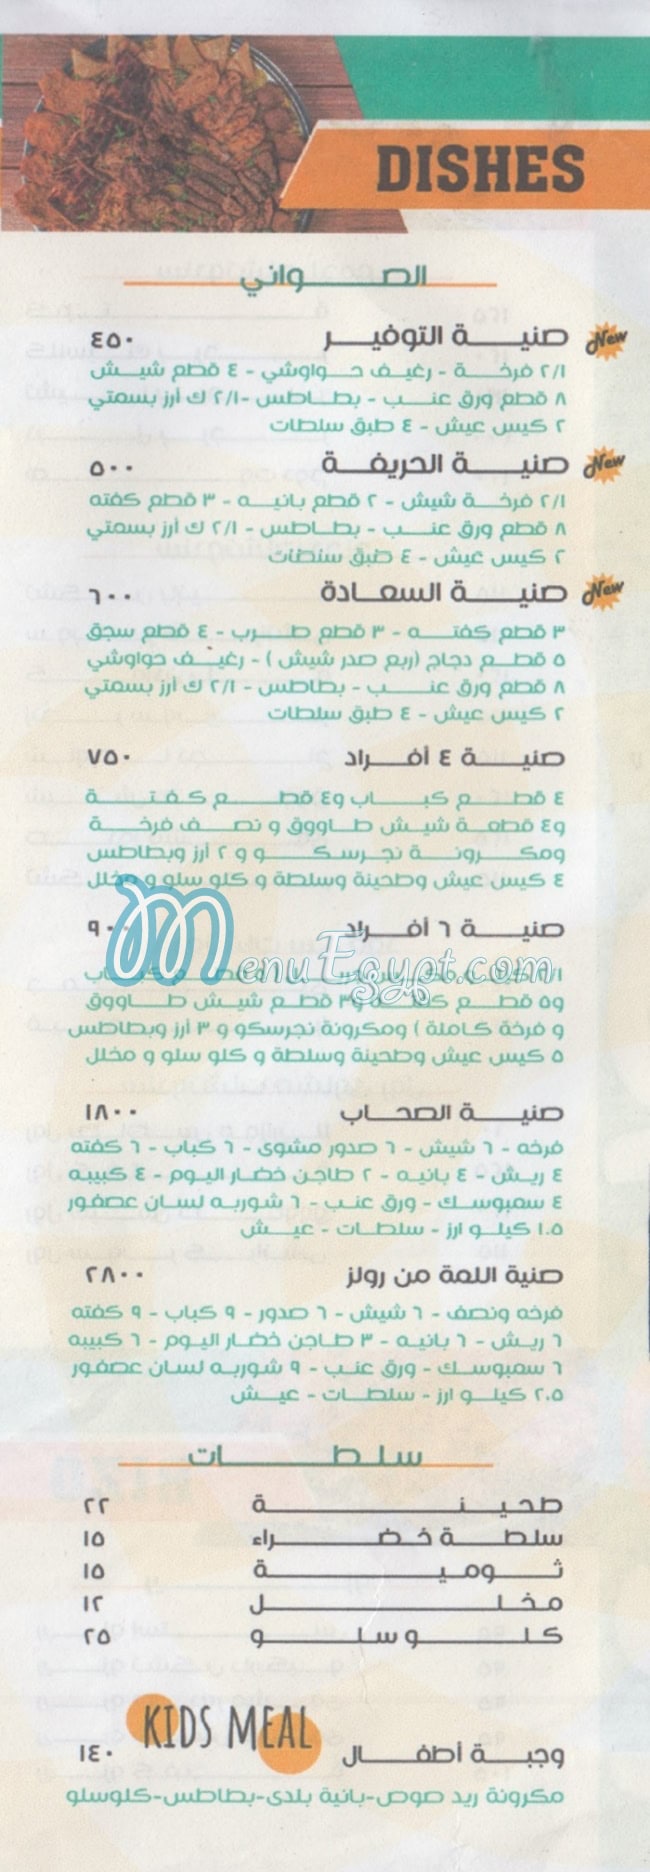 DISHES
الصواني
New صنية التوفير ٤٥٠
٢/١ فرخة - رغيف حواوشي - ٤ قطع شيش
٨ قطع ورق عنب - بطاطس - ٢/١ ك أرز بسمتي
٢ كيس عيش - ٤ طبق سلطات
New صنية الحريفة ٥٠٠
٢/١ فرخة شيش - ٢ قطع بانيه - ٣ قطع كفته
٨ قطع ورق عنب - بطاطس - ٢/١ ك أرز بسمتي
٢ كيس عيش - ٤ طبق سلطات
New صنية السعادة ٦٠٠
٣ قطع كفته - ٣ قطع طرب - ٤ قطع سجق
٥ قطع دجاج (ربع صدر شيش) - رغيف حواوشي
٨ قطع ورق عنب - بطاطس - ٢/١ ك أرز بسمتي
٢ كيس عيش - ٤ طبق سلطات
صنية ٤ أفراد ٧٥٠
٤ قطع كباب و٤ قطع كفتة
و٤ قطعة شيش طاووق و نصف فرخة
ومكرونة نجرسكو و ٢ أرز وبطاطس
٤ كيس عيش وطحينة وسلطة و كلو سلو و مخلل
صنية ٦ أفراد ٩٠٠
MenuEgypt.com
كباب
و٥ قطع و٣ قطع شيش طاووق
و فرخة كاملة ) ومكرونة نجرسكو و ٣ أرز وبطاطس
٥ كيس عيش وطحينة وسلطة و كلو سلو و مخلل
صنية الصحاب ١٨٠٠
فرخه - ٦ شيش - ٦ صدور مشوى - ٦ كباب - ٦ كفته
٤ ريش - ٤ بانيه - ٢ طاجن خضار اليوم - ٤ كبيبه
٤ سمبوسك - ورق عنب - ٦ شوربه لسان عصفور
١.٥ كيلو ارز - سلطات - عيش
صنية اللمة من رولز ٢٨٠٠
فرخه ونصف - ٦ شيش - ٦ صدور - ٩ كباب - ٩ كفته
٦ ريش - ٦ بانيه - ٣ طاجن خضار اليوم - ٦ كبيبه
٦ سمبوسك - ورق عنب - ٩ شوربه لسان عصفور
٢.٥ كيلو ارز - سلطات - عيش
سلطات
طحينة ٢٢
سلطة خضراء ١٥
ثومية ١٥
مخلل ١٢
كلو سلو ٢٥
KIDS MEAL
وجبة أطفال ١٤٠
مكرونة ريد صوص-بانية بلدى-بطاطس-كلوسلو